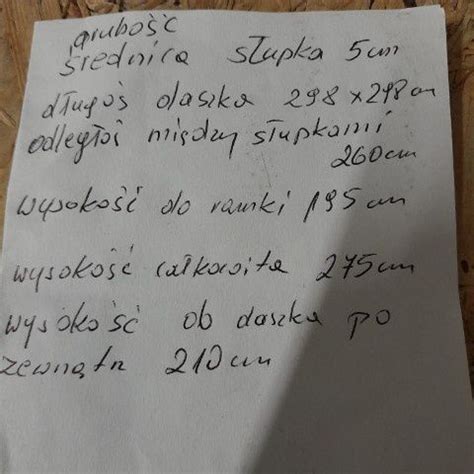 grubość
średnica słupka 5cm
długoś daszka 298 x 298 cm
odległoś między słupkami
260cm
wysokość do ramki 195 cm
wysokość całkowita 275cm
wysokość ob daszka po
zewnątrz 210cm